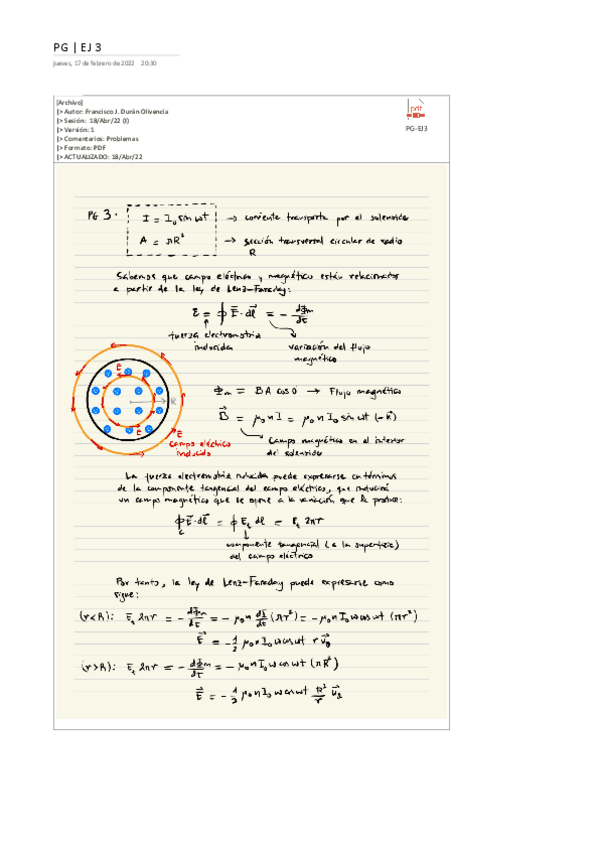 PG | EJ 3
jueves, 17 de febrero de 2022 20:30
[Archivo]
|> Autor: Francisco J. Durán Olivencia
|> Sesión: 18/Abr/22 (I)
|> Versión: 1
|> Comentarios: Problemas
|> Formato: PDF
|> ACTUALIZADO: 18/Abr/22
pdf
PG-EJ3
PG 3. I = I₀ sin ωt → corriente transporta por el solenoide
A = πR² → sección transversal circular de radio
R
Sabemos que campo eléctrico y magnético están relacionados
a partir de la ley de Lenz-Faraday:
ε = ∮ E⃗ · dl⃗ = - dΦm/dt
fuerza electromotriz
inducida
variación del flujo
magnético
E⃗
R
E⃗
campo eléctrico
inducido
Φm = BA cos 0 → Flujo magnético
B⃗ = μ₀ n I = μ₀ n I₀ sin ωt (-k)
campo magnético en el interior
del solenoide
La fuerza electromotriz inducida puede expresarse en términos
de la componente tangencial del campo eléctrico, que inducirá
un campo magnético que se opone a la variación que la produce:
∮c E⃗ · dl⃗ = ∮ Et dl = Et 2πr
componente tangencial (a la superficie)
del campo eléctrico
Por tanto, la ley de Lenz-Faraday puede expresarse como
sigue:
(r<R): Et 2πr = - dΦm/dt = - μ₀ n dI/dt (πr²) = - μ₀ n I₀ ω cos ωt (πr²)
E⃗ = - 1/2 μ₀ n I₀ ω cos ωt r u⃗θ
(r>R): Et 2πr = - dΦm/dt = - μ₀ n I₀ ω cos ωt (πR²)
E⃗ = - 1/2 μ₀ n I₀ ω cos ωt R²/r u⃗θ